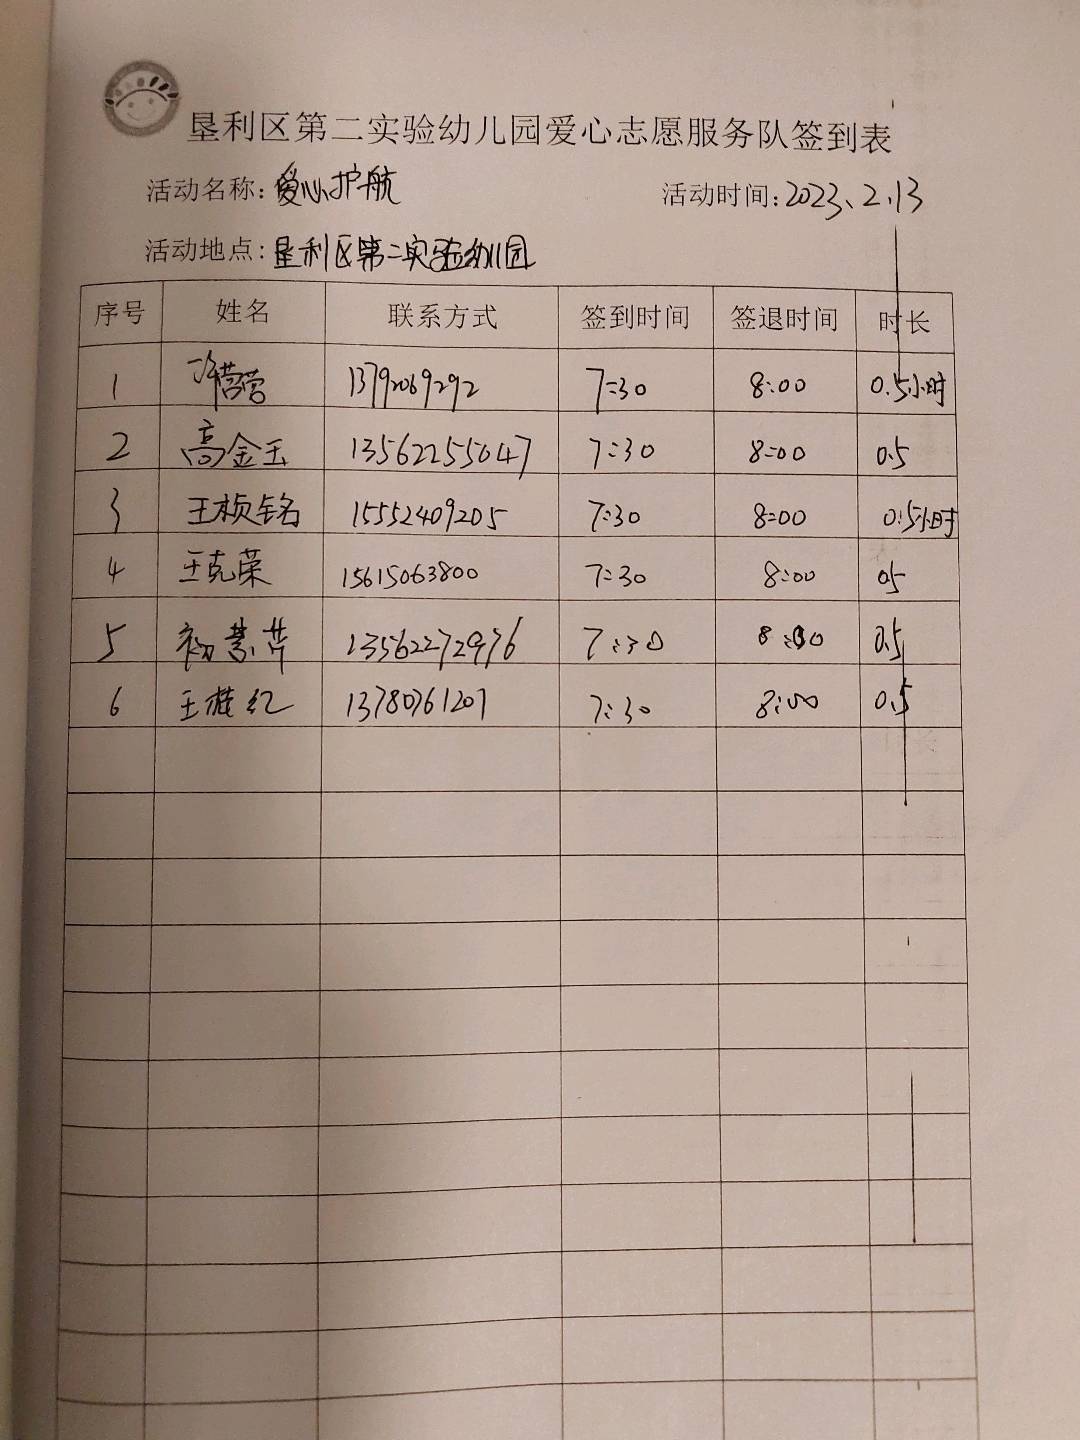 垦利区第二实验幼儿园爱心志愿服务队签到表
活动名称：爱心护航 活动时间：2023、2.13
活动地点：垦利区第二实验幼儿园
序号 姓名 联系方式 签到时间 签退时间 时长
1 许营营 13792069292 7:30 8:00 0.5小时
2 高金玉 13562255047 7:30 8:00 0.5
3 王桢铭 15552409205 7:30 8:00 0.5小时
4 王克荣 15615063800 7:30 8:00 0.5
5 初慧芹 13562272976 7:30 8:00 0.5
6 王桂红 13780761207 7:30 8:00 0.5